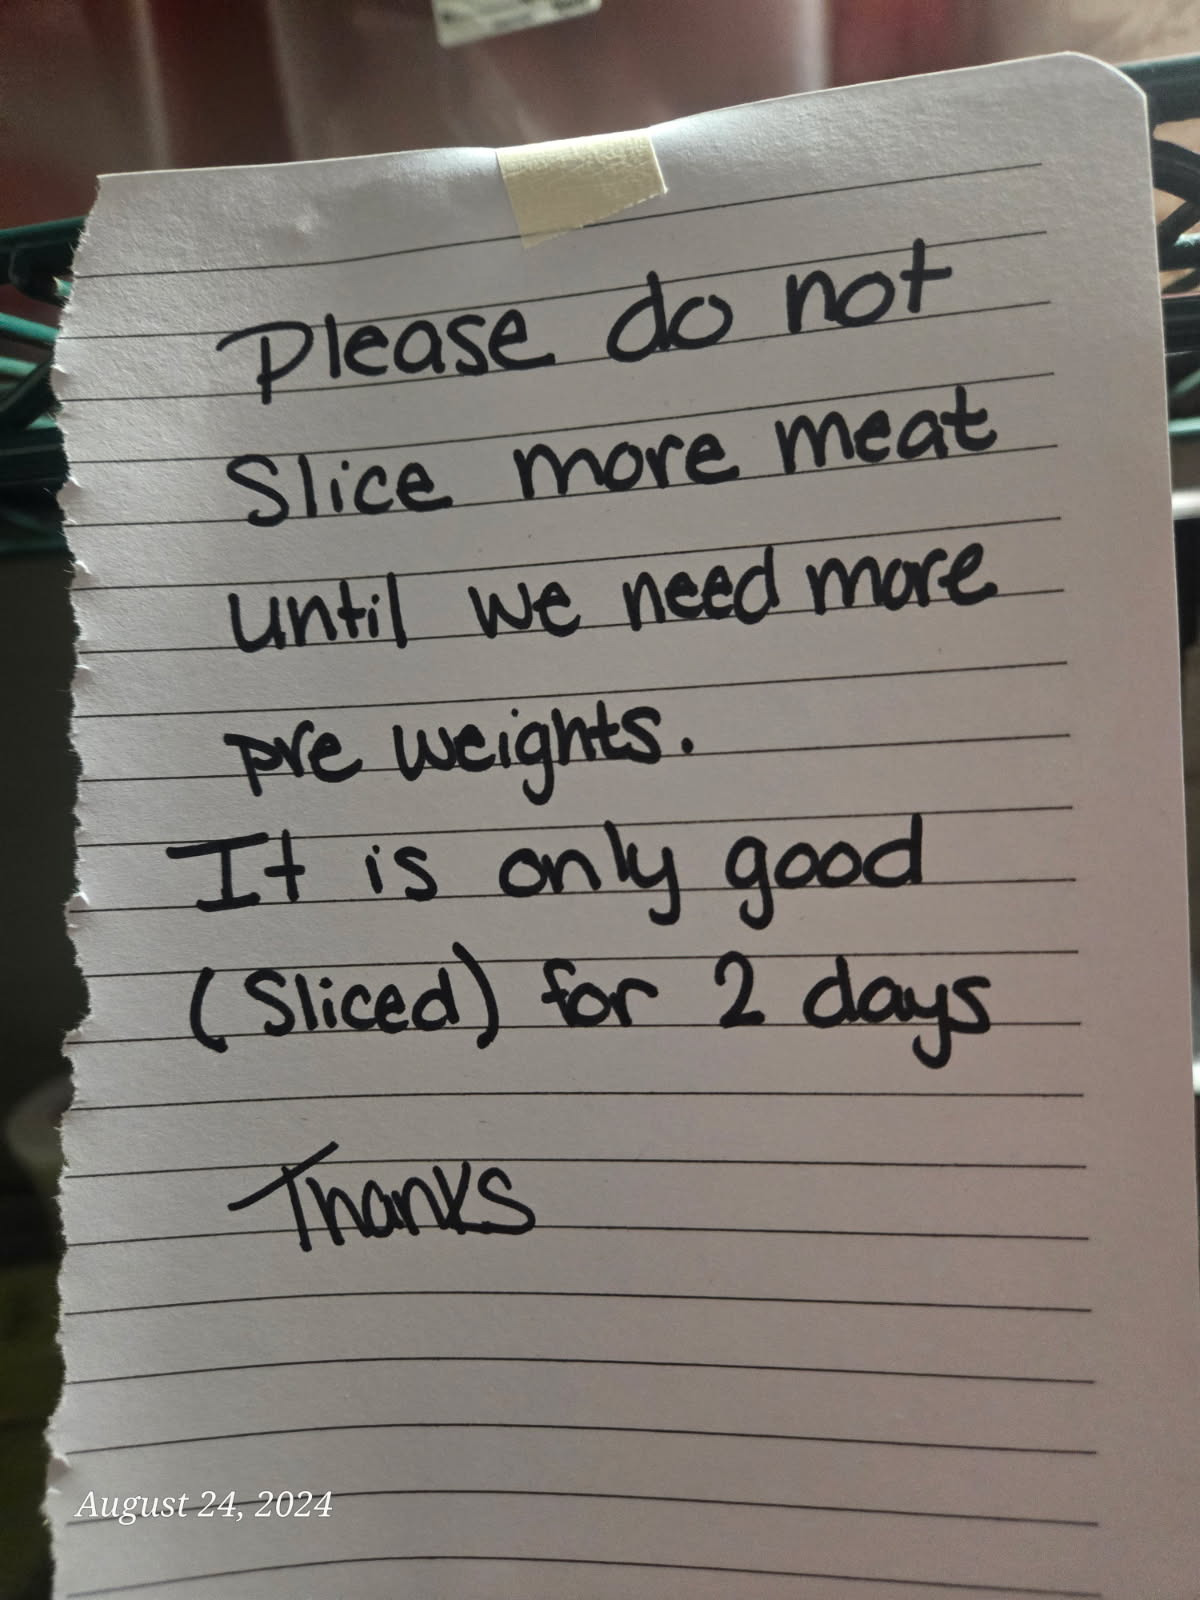 Please do not
Slice more meat
until we need more
pre weights.
It is only good
(Sliced) for 2 days
Thanks
August 24, 2024